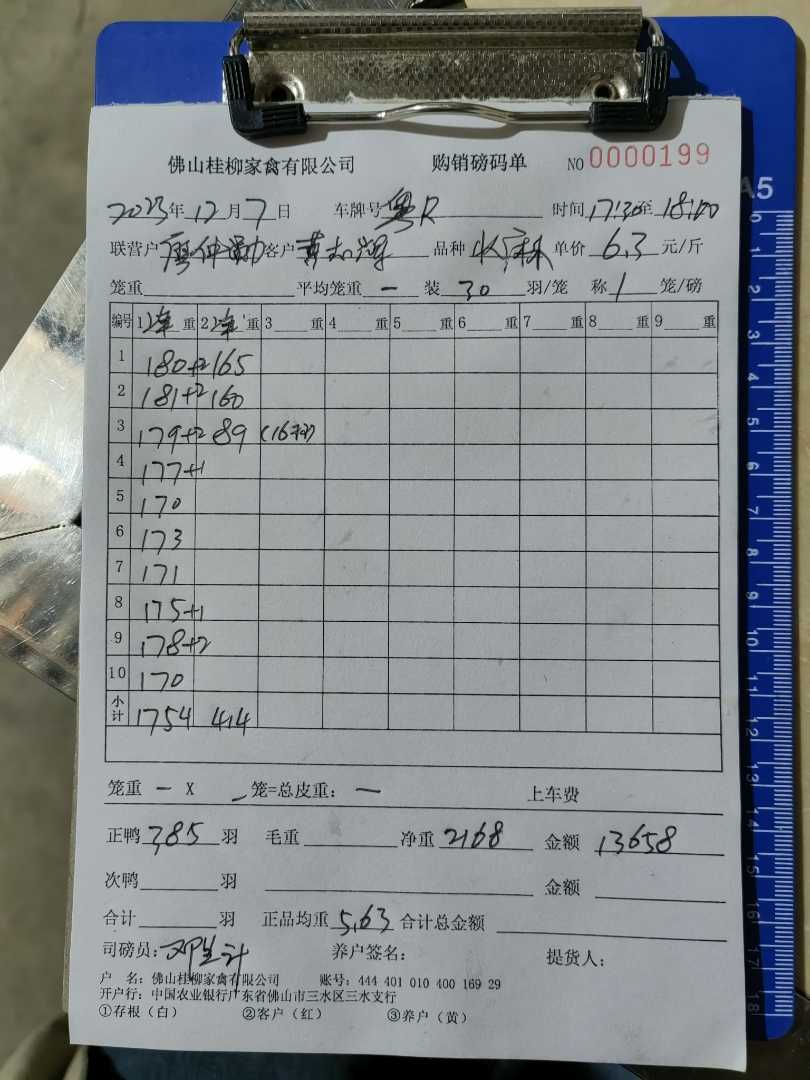 佛山桂柳家禽有限公司 购销磅码单 NO 0000199
2023年12月7日 车牌号粤R 时间17:30至18:00
联营户 客户黄 品种 单价6.3元/斤
笼重 平均笼重 一 装 30 羽/笼 称 1 笼/磅
编号 1 净 重 2 净 重 3 重 4 重 5 重 6 重 7 重 8 重 9 重
1 180+2 165
2 181+2 160
3 179+2 89 (16只)
4 177+1
5 170
6 173
7 171
8 175+1
9 178+2
10 170
小计 1754 414
笼重 一 X 一 笼=总皮重: 一 上车费
正鸭 385 羽 毛重 净重 2168 金额 13658
次鸭 羽 金额
合计 羽 正品均重 5.63 合计总金额
司磅员: 养户签名: 提货人:
户 名: 佛山桂柳家禽有限公司 账号: 444 401 010 400 169 29
开户行: 中国农业银行广东省佛山市三水区三水支行
①存根（白） ②客户（红） ③养户（黄）
A5
0 1 2 3 4 5 6 7 8 9 10 11 12 13 14 15 16 17 18